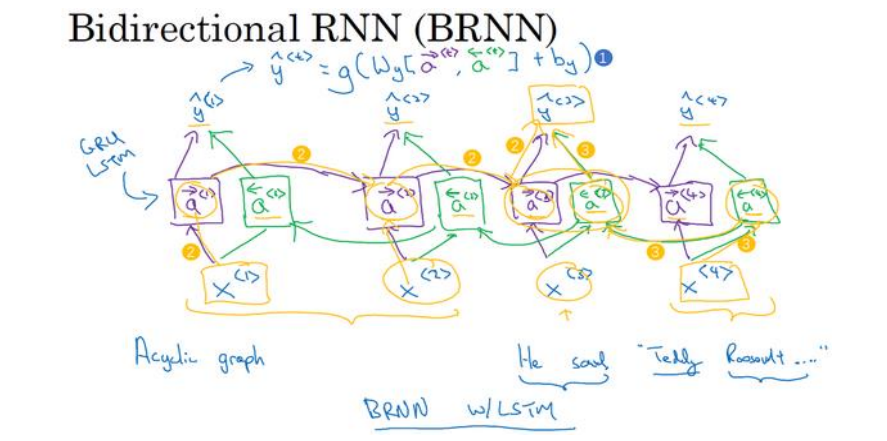 Bidirectional RNN (BRNN)
ŷ<t> = g(Wy[a→<t>, a←<t>] + by) 1
ŷ<1> ŷ<2> ŷ<3> ŷ<4>
GRU
LSTM
2 2 2 3
a→<1> a←<1> a→<2> a←<2> a→<3> a←<3> a→<4> a←<4>
2 3 3
x<1> x<2> x<3> x<4>
Acyclic graph
He said "Teddy Roosevelt...."
BRNN w/LSTM